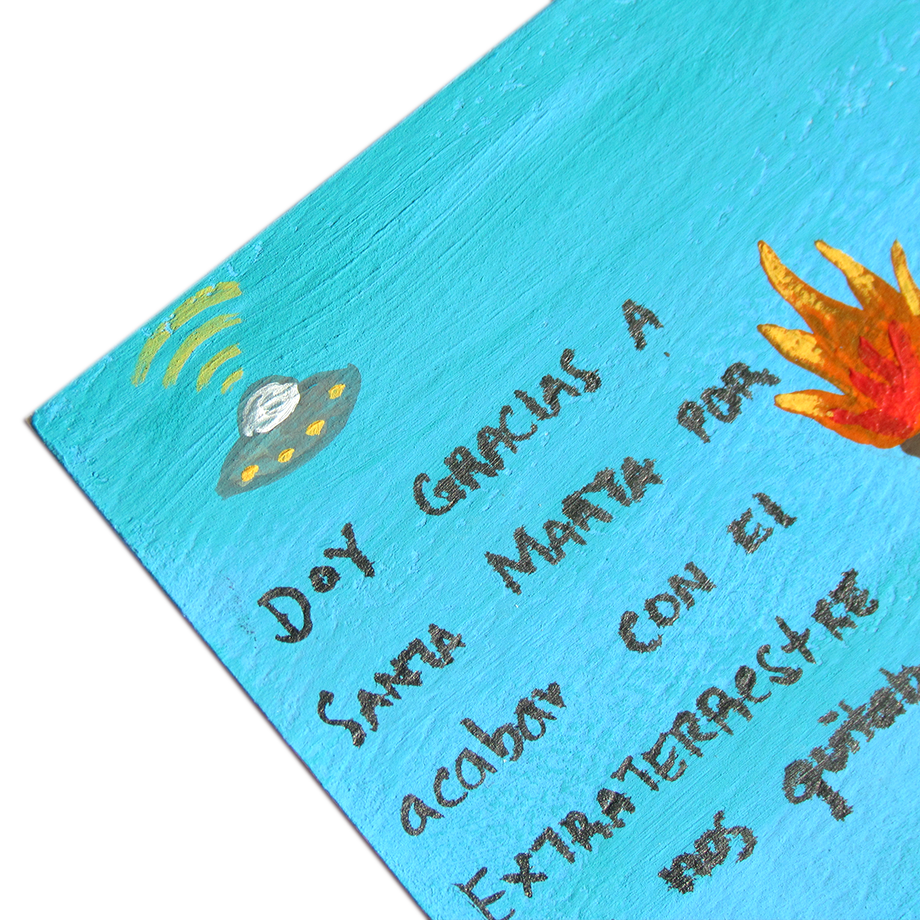 Doy GRACIAS A
SANTA MARTA POR
acabar CON El
EXTRATERRAestRE
nos